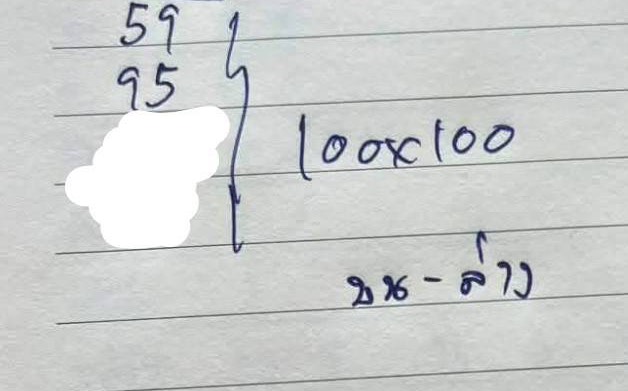 59
95
100x100
บน - ล่าง